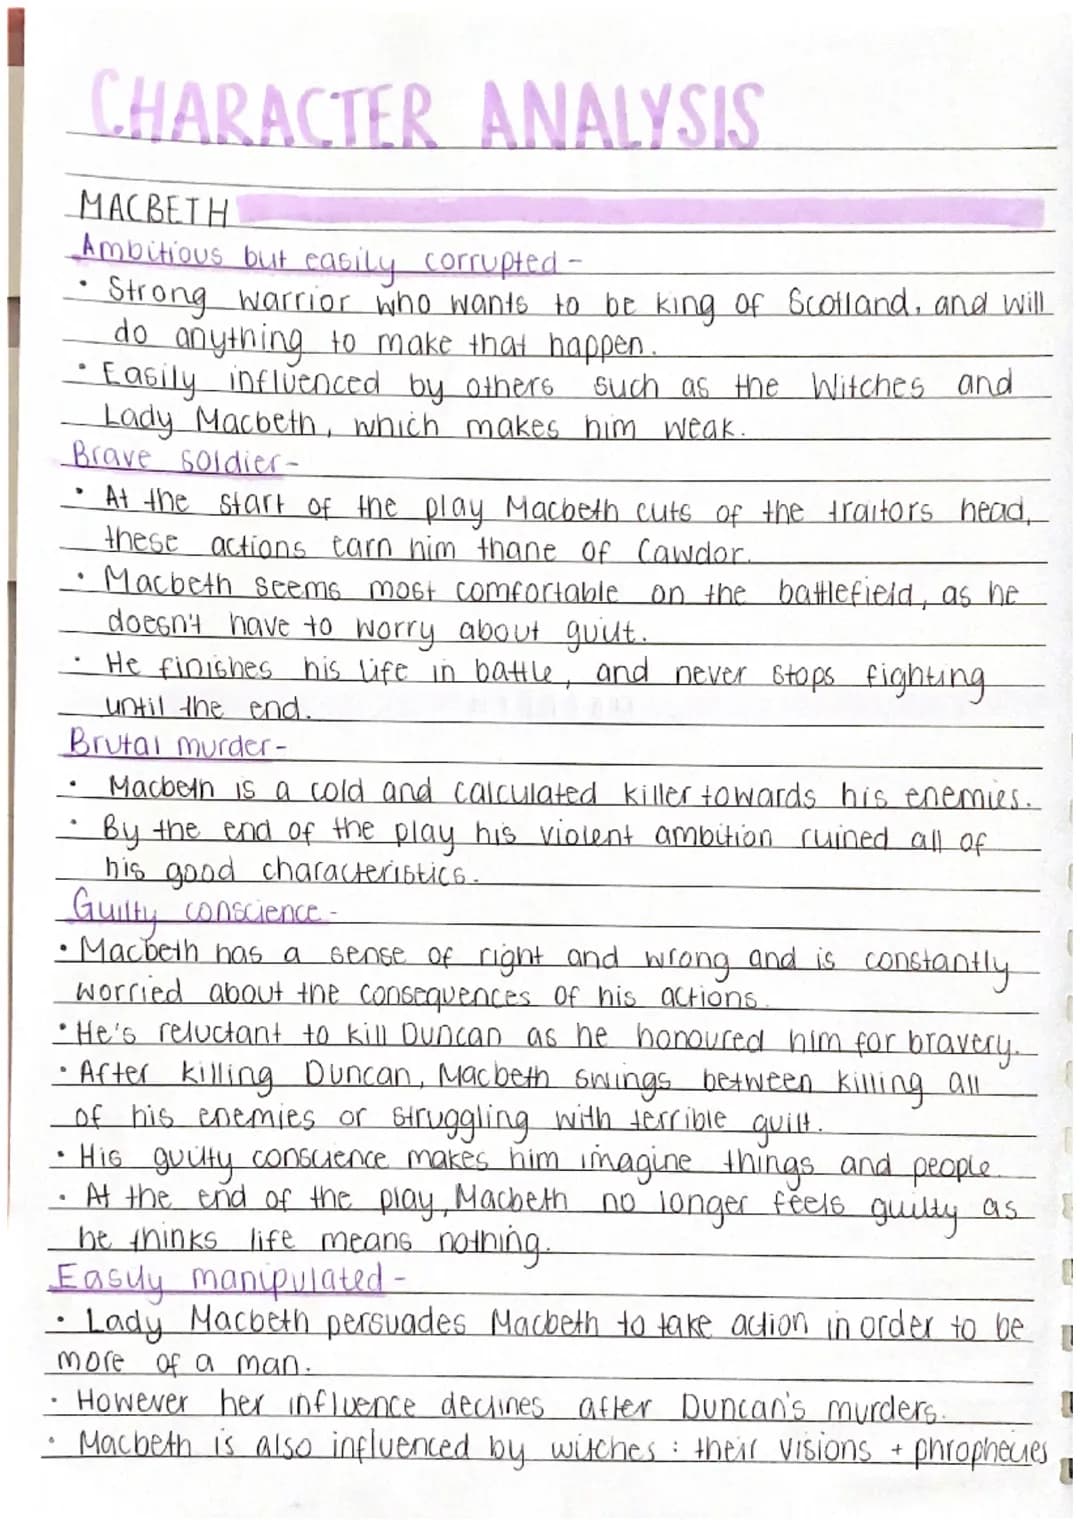 CHARACTER ANALYSIS
MACBETH
Ambitious but easily corrupted -
• Strong warrior who wants to be king of Scotland, and will
do anything to make that happen.
• Easily influenced by others such as the Witches and
Lady Macbeth, which makes him weak.
Brave soldier -
• At the start of the play Macbeth cuts of the traitors head,
these actions earn him thane of Cawdor.
• Macbeth seems most comfortable on the battlefield, as he
doesn't have to worry about guilt.
• He finishes his life in battle, and never stops fighting
until the end.
Brutal murder -
• Macbeth is a cold and calculated killer towards his enemies.
• By the end of the play his violent ambition ruined all of
his good characteristics.
Guilty conscience -
• Macbeth has a sense of right and wrong and is constantly
worried about the consequences of his actions.
• He's reluctant to kill Duncan as he honoured him for bravery.
• After killing Duncan, Macbeth swings between killing all
of his enemies or struggling with terrible guilt.
• His guilty conscience makes him imagine things and people
• At the end of the play, Macbeth no longer feels guilty as
he thinks life means nothing.
Easily manipulated -
• Lady Macbeth persuades Macbeth to take action in order to be
more of a man.
• However her influence declines after Duncan's murders.
• Macbeth is also influenced by witches : their visions + phrophecies